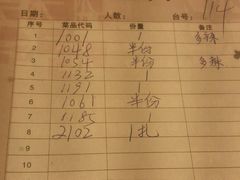 日期: 人数: 台号: 114
序号 菜品代码 份量 备注
1 1001 1 多辣
2 1048 半份
3 1054 半份 多辣
4 1132 1
5 1191 1
6 1061 半份
7 1185 1
8 2102 1扎
9
10